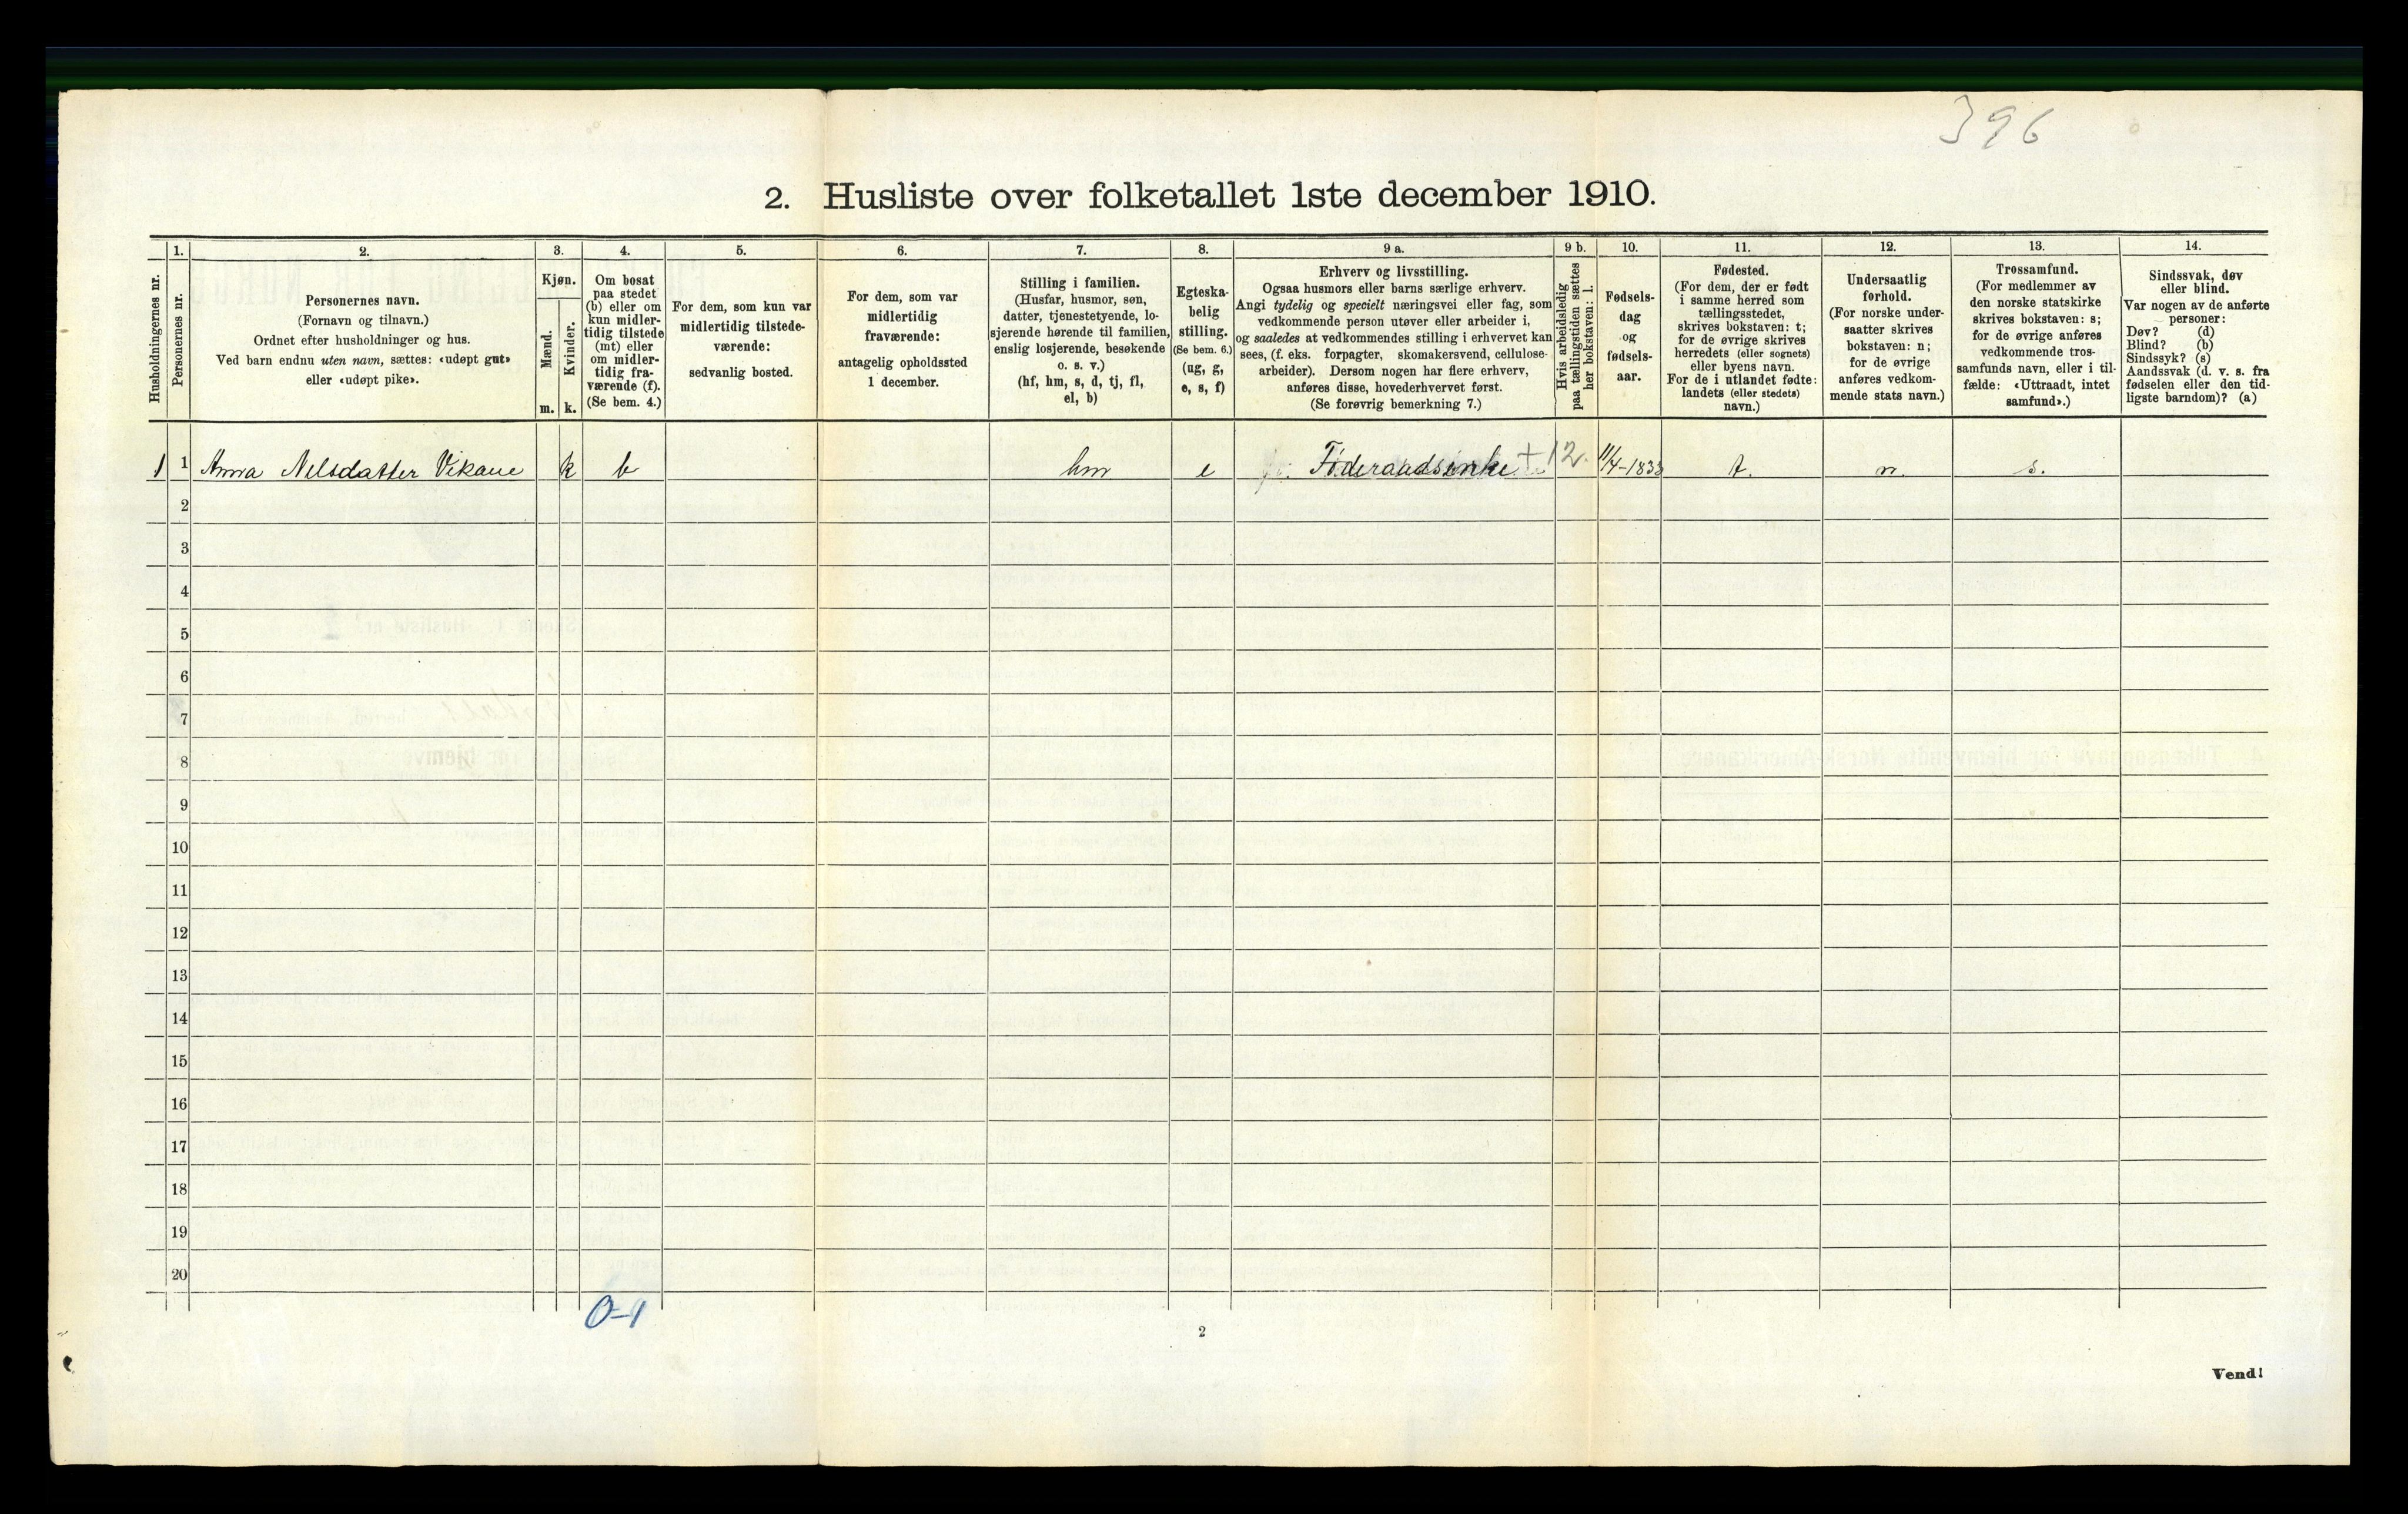 396
2. Husliste over folketallet 1ste december 1910.
1. 2. 3. 4. 5. 6. 7. 8. 9 a. 9 b. 10. 11. 12. 13. 14.
Husholdningernes nr.
Personernes nr.
Personernes navn.
(Fornavn og tilnavn.)
Ordnet efter husholdninger og hus.
Ved barn endnu uten navn, sættes: «udøpt gut»
eller «udøpt pike».
Kjøn.
Mænd.
Kvinder.
m. k.
Om bosat
paa stedet
(b) eller om
kun midler-
tidig tilstede
(mt) eller
om midler-
tidig fra-
værende (f).
(Se bem. 4.)
For dem, som kun var
midlertidig tilstede-
værende:
sedvanlig bosted.
For dem, som var
midlertidig
fraværende:
antagelig opholdssted
1 december.
Stilling i familien.
(Husfar, husmor, søn,
datter, tjenestetyende, lo-
sjerende hørende til familien,
enslig losjerende, besøkende
o. s. v.)
(hf, hm, s, d, tj, fl,
el, b)
Egteska-
belig
stilling.
(Se bem. 6.)
(ug, g,
e, s, f)
Erhverv og livsstilling.
Ogsaa husmors eller barns særlige erhverv.
Angi tydelig og specielt næringsvei eller fag, som
vedkommende person utøver eller arbeider i,
og saaledes at vedkommendes stilling i erhvervet kan
sees, (f. eks. forpagter, skomakersvend, cellulose-
arbeider). Dersom nogen har flere erhverv,
anføres disse, hovederhvervet først.
(Se forøvrig bemerkning 7.)
Hvis arbeidsledig
paa tællingstiden sættes
her bokstaven: l.
Fødsels-
dag
og
fødsels-
aar.
Fødested.
(For dem, der er født
i samme herred som
tællingsstedet,
skrives bokstaven: t;
for de øvrige skrives
herredets (eller sognets)
eller byens navn.
For de i utlandet fødte:
landets (eller stedets)
navn.)
Undersaatlig
forhold.
(For norske under-
saatter skrives
bokstaven: n;
for de øvrige
anføres vedkom-
mende stats navn.)
Trossamfund.
(For medlemmer av
den norske statskirke
skrives bokstaven: s;
for de øvrige anføres
vedkommende tros-
samfunds navn, eller i til-
fælde: «Uttraadt, intet
samfund».)
Sindssvak, døv
eller blind.
Var nogen av de anførte
personer:
Døv? (d)
Blind? (b)
Sindssyk? (s)
Aandssvak (d. v. s. fra
fødselen eller den tid-
ligste barndom)? (a)
1 1 Anna Nelsdatter Vikane k b hm e Føderaadsenke + 12. 11/4-1833 t. n. s.
2
3
4
5
6
7
8
9
10
11
12
13
14
15
16
17
18
19
20
0-1
2
Vend!